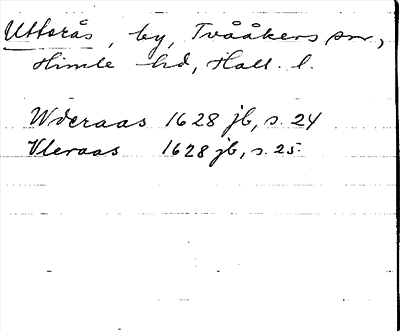 Utterås, by, Tvååkers sn,
Himle hd, Hall. l.
Wderaas 1628 jb, s. 24
Vleraas 1628 jb, s. 25.